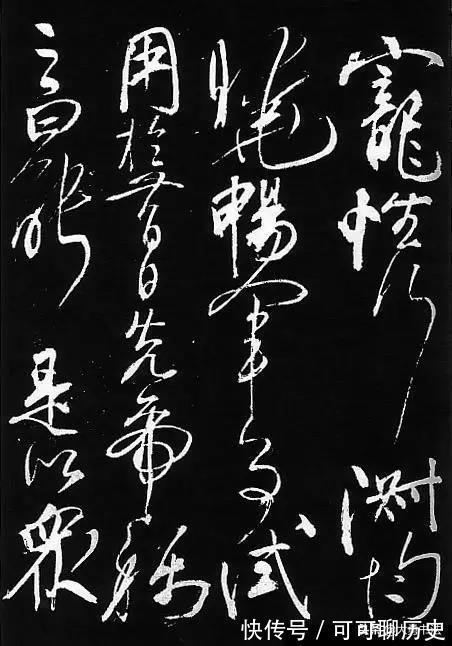 寵性行淑均
曉暢軍事試
用於昔日先帝稱
之曰能是以衆
快传号 / 可可聊历史